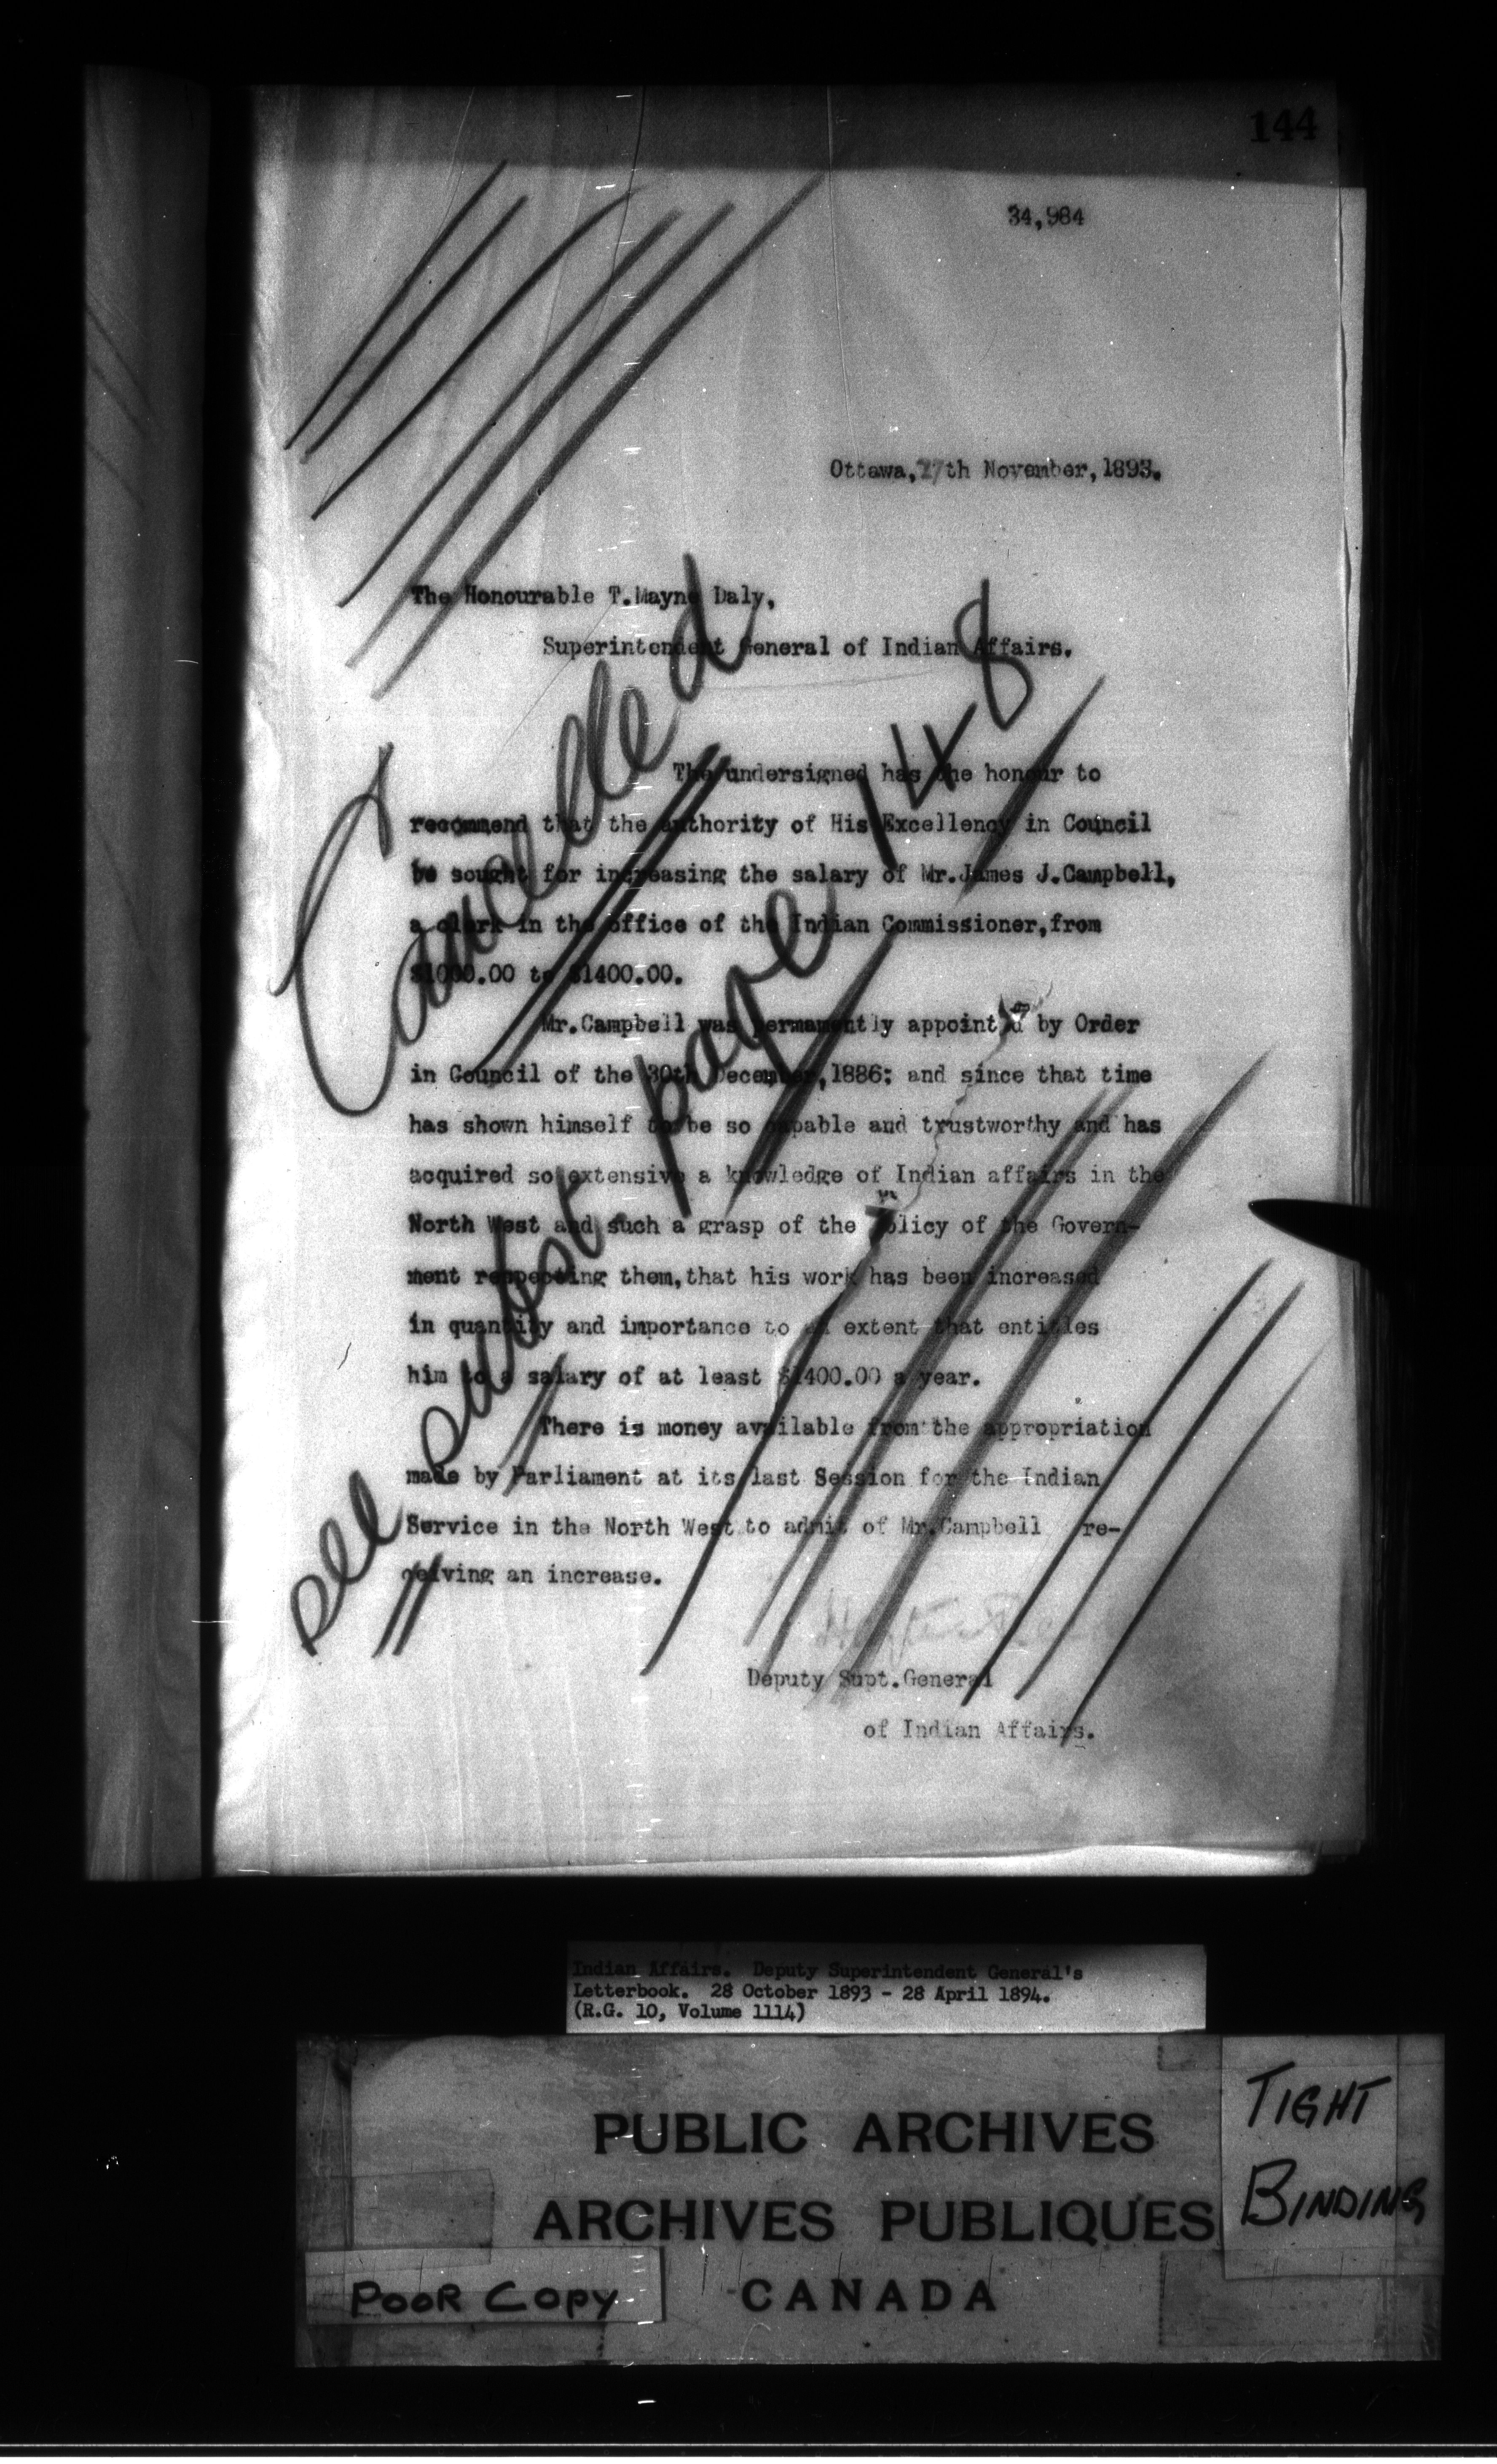 144
34,984
Ottawa, 27th November, 1893.
The Honourable T. Mayne Daly,
Superintendent General of Indian Affairs.
Cancelled
see entire page 148
The undersigned has the honour to
recommend that the authority of His Excellency in Council
be sought for increasing the salary of Mr. James J. Campbell,
a clerk in the office of the Indian Commissioner, from
$1000.00 to $1400.00.
Mr. Campbell was permanently appointed by Order
in Council of the 30th December, 1886; and since that time
has shown himself to be so capable and trustworthy and has
acquired so extensive a knowledge of Indian affairs in the
North West and such a grasp of the policy of the Govern-
ment respecting them, that his work has been increased
in quantity and importance to an extent that entitles
him to a salary of at least $1400.00 a year.
There is money available from the appropriation
made by Parliament at its last Session for the Indian
Service in the North West to admit of Mr. Campbell re-
ceiving an increase.
Deputy Supt. General
of Indian Affairs.
Indian Affairs. Deputy Superintendent General's
Letterbook. 28 October 1893 - 28 April 1894.
(R.G. 10, Volume 1114)
PUBLIC ARCHIVES
ARCHIVES PUBLIQUES
CANADA
TIGHT
BINDING
POOR COPY